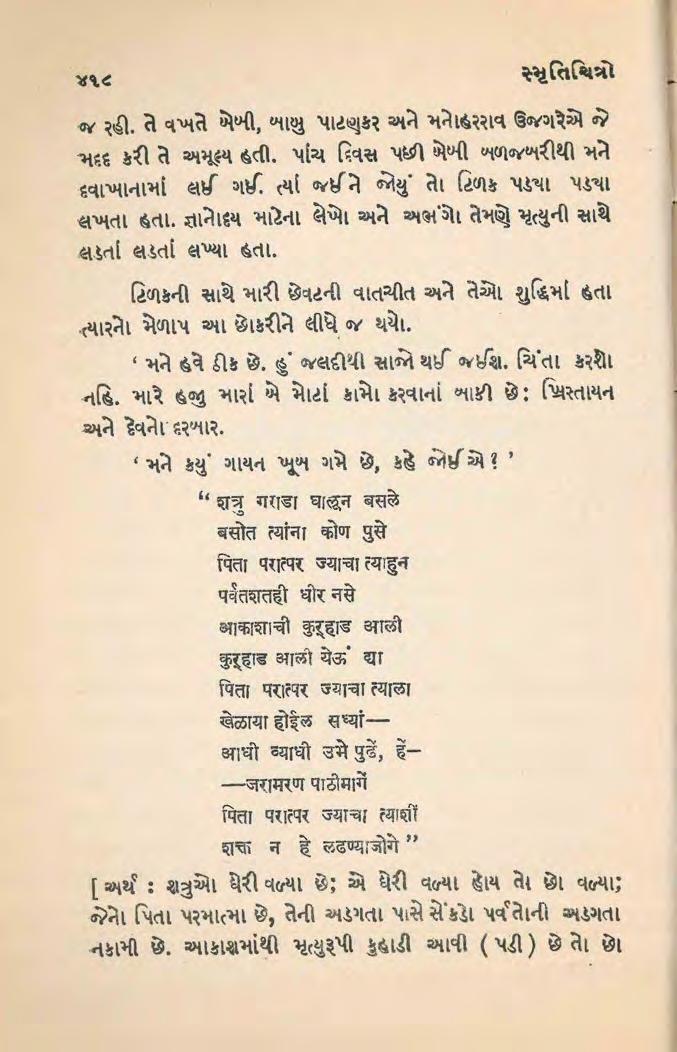 ૪૧૮ સ્મૃતિચિત્રો
જ રહી. તે વખતે બેબી, બાબુ પાટણકર અને મનોહરરાવ ઉજગરેએ જે
મદદ કરી તે અમૂલ્ય હતી. પાંચ દિવસ પછી બેબી બળજબરીથી મને
દવાખાનામાં લઈ ગઈ. ત્યાં જઈને જોયું તો ટિળક પડ્યા પડ્યા
લખતા હતા. જ્ઞાનોદય માટેના લેખો અને અભંગો તેમણે મૃત્યુની સાથે
લડતાં લડતાં લખ્યા હતા.
ટિળકની સાથે મારી છેવટની વાતચીત અને તેઓ શુદ્ધિમાં હતા
ત્યારનો મેળાપ આ છોકરીને લીધે જ થયો.
‘ મને હવે ઠીક છે. હું જલદીથી સાજો થઈ જઈશ. ચિંતા કરશો
નહિ. મારે હજુ મારાં બે મોટાં કામો કરવાનાં બાકી છે : ખ્રિસ્તાયન
અને દેવનો દરબાર.
‘ મને કયું ગાયન ખૂબ ગમે છે, કહે જોઈએ ? ’
“ शत्रु गराडा घालून बसले
बसोत त्यांना कोण पुसे
पिता परात्पर ज्याचा त्याहुन
पर्वतशतही धीर नसे
आकाशाची कुऱ्हाड आली
कुऱ्हाड आली येऊं द्या
पिता परात्पर ज्याचा त्याला
खेळाया होईल सध्यां—
आधी व्याधी उभे पुढें, हें—
—जरामरण पाठीमागें
पिता परात्पर ज्याचा त्याशीं
शक्त न हे लढण्याजोगे ”
[ અર્થ : શત્રુઓ ઘેરી વળ્યા છે; એ ઘેરી વળ્યા હોય તો છો વળ્યા;
જેનો પિતા પરમાત્મા છે, તેની અડગતા પાસે સેંકડો પર્વતોની અડગતા
નકામી છે. આકાશમાંથી મૃત્યુરૂપી કુહાડી આવી ( પડી ) છે તો છો